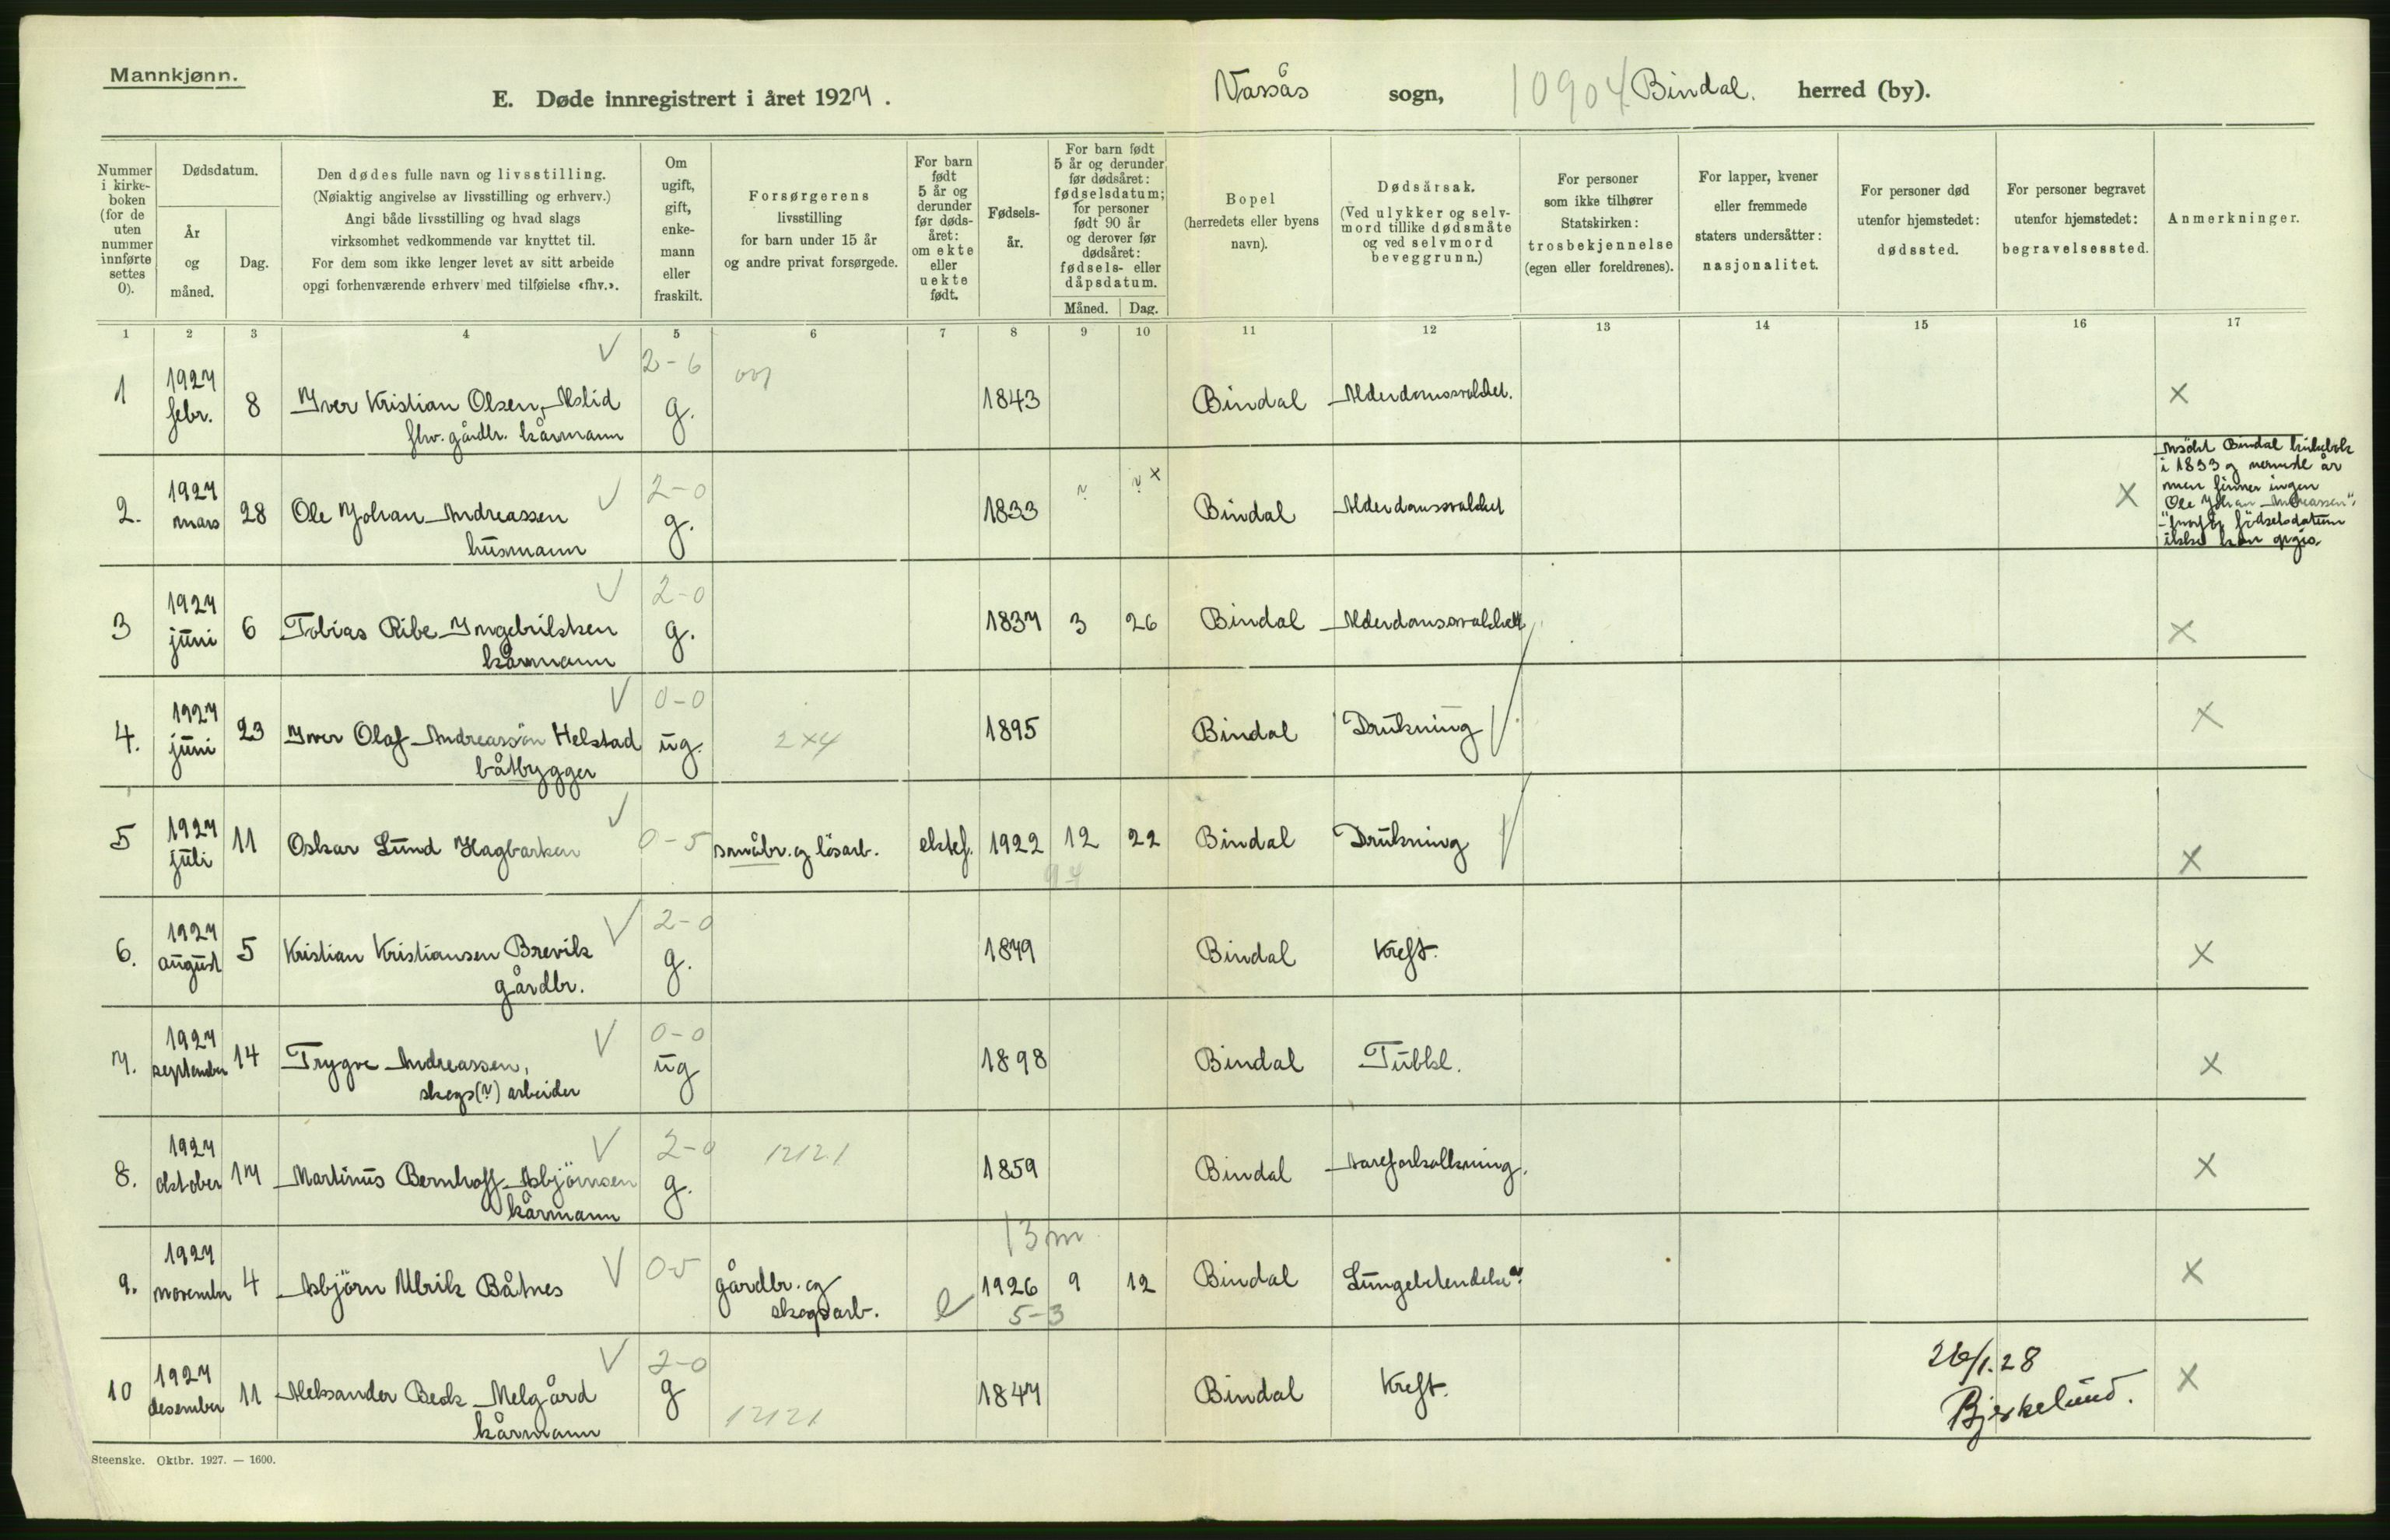 Mannkjønn.
E. Døde innregistrert i året 1927.
Vassås sogn, 10904 Bindal. herred (by).
Nummer i kirke-boken (for de uten nummer innførte settes 0).
Dødsdatum.
År og måned.
Dag.
Den dødes fulle navn og livsstilling.
(Nøiaktig angivelse av livsstilling og erhverv.)
Angi både livsstilling og hvad slags
virksomhet vedkommende var knyttet til.
For dem som ikke lenger levet av sitt arbeide
opgi forhenværende erhverv med tilføielse «fhv.».
Om ugift, gift, enke-mann eller fraskilt.
Forsørgerens
livsstilling
for barn under 15 år
og andre privat forsørgede.
For barn født 5 år og derunder før døds-året: om ekte eller uekte født.
Fødsels-år.
For barn født 5 år og derunder før dødsåret: fødselsdatum; for personer født 90 år og derover før dødsåret: fødsels- eller dåpsdatum.
Måned. Dag.
Bopel
(herredets eller byens navn).
Dødsårsak.
(Ved ulykker og selv-mord tillike dødsmåte og ved selvmord beveggrunn.)
For personer som ikke tilhører Statskirken: trosbekjennelse (egen eller foreldrenes).
For lapper, kvener eller fremmede staters undersåtter: nasjonalitet.
For personer død utenfor hjemstedet: dødssted.
For personer begravet utenfor hjemstedet: begravelsessted.
Anmerkninger.
1 2 3 4 5 6 7 8 9 10 11 12 13 14 15 16 17
1 1927 febr. 8 Iver Kristian Olsen Aslid 2-6 g. 1843 Bindal Alderdomssvakhet. X
fhv. gårdbr. kårmann
2. 1927 mars 28 Ole Johan Andreassen 2-0 g. 1833 ? ? x Bindal Alderdomssvakhet X
husmann
i 1833 og nermste år
men finner ingen
Ole Johan Andreassen"
fødselsdatum
ikke kan opgis.
3 1927 juni 6 Tobias Ribe Ingebriktsen 2-0 g. 1837 3 26 Bindal Alderdomssvakhet X
kårmann
4. 1927 juni 23 Iver Olaf Andreassön Helstad 0-0 ug. 2x4 1895 Bindal Drukning X
båtbygger
5 1927 juli 11 Oskar Lund Hagbarken 0-5 småbr. og lösarb. ektef. 1922 12 22 Bindal Drukning X
6. 1927 august 5 Kristian Kristiansen Brevik 2-0 g. 1879 Bindal Kreft. X
gårdbr.
7. 1927 september 14 Trygve Andreassen, 0-0 ug 1898 Bindal Tubkl. X
skogs(?) arbeider
8. 1927 oktober 17 Martinus Bernhoff Asbjörnsen 2-0 g. 12121 1859 Bindal Aareforkalkning. X
kårmann
13 m
9. 1927 november 4 Asbjörn Ulrik Båtnes 0-5 gårdbr. og e 1926 9 12 Bindal Lungebetendelse X
skogsarb. 5-3
10 1927 desember 11 Aleksander Beck Melgård 2-0 g 12121 1847 Bindal Kreft. X
kårmann
26/1.28
Bjerkelund.
Steenske. Oktbr. 1927. — 1600.